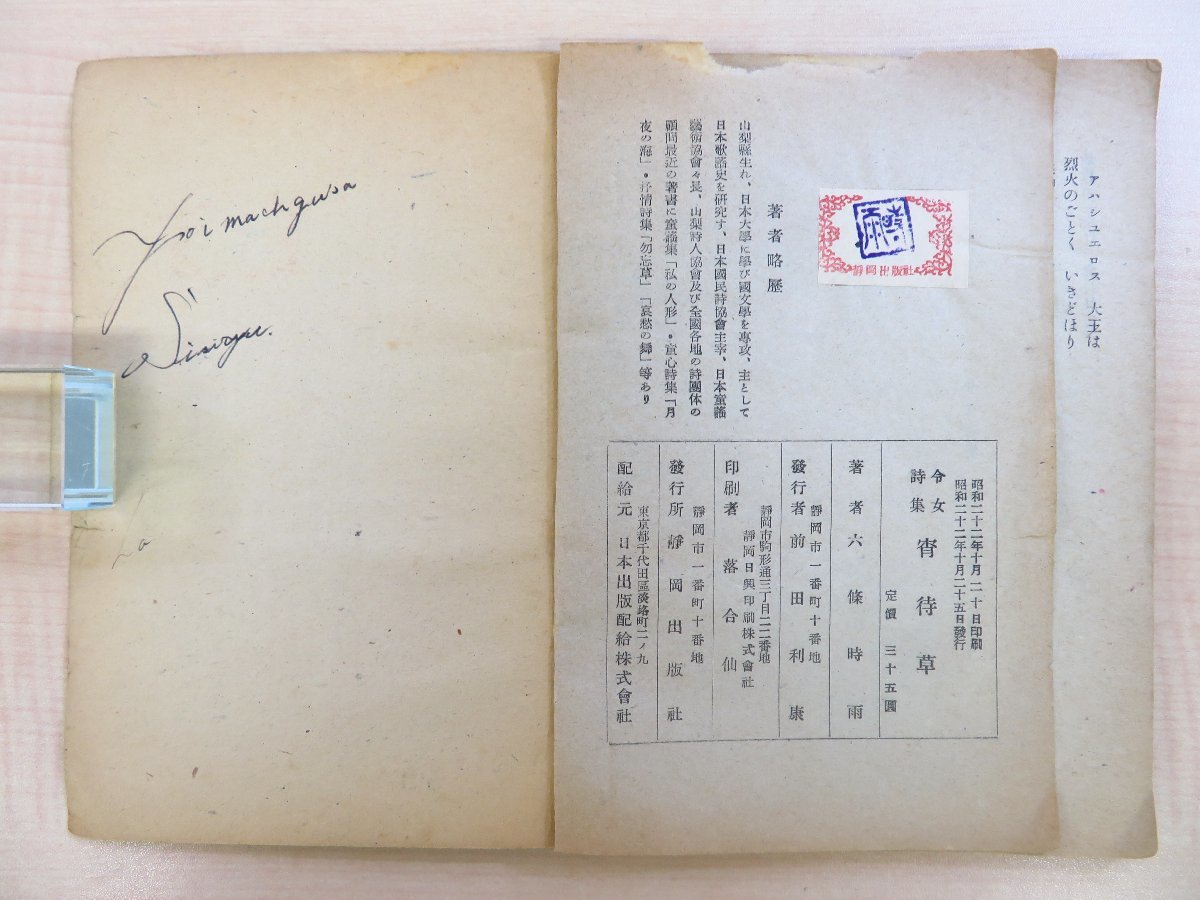 アハシユエロス 大王は
烈火のごとく いきどほり
靜岡出版社
著者略歷
山梨縣生れ、日本大學に學び國文學を專攻、主として
日本歌謠史を硏究す、日本國民詩協會主宰、日本童謠
藝術協會々長、山梨詩人協會及び全國各地の詩團体の
顧問最近の著書に童謠集「私の人形」・童心詩集「月
夜の海」・抒情詩集「勿忘草」「哀愁の舞」等あり
昭和二十二年十月二十日印刷
昭和二十二年十月二十五日發行
令女詩集 宵待草
定價 三十五圓
著者 六條時雨
靜岡市一番町十番地
發行者 前田利康
靜岡市駒形通三丁目二二番地
靜岡日興印刷株式會社
印刷者 落合仙
靜岡市一番町十番地
發行所 靜岡出版社
東京都千代田區淡路町二ノ九
配給元 日本出版配給株式會社
Yoi machgusa